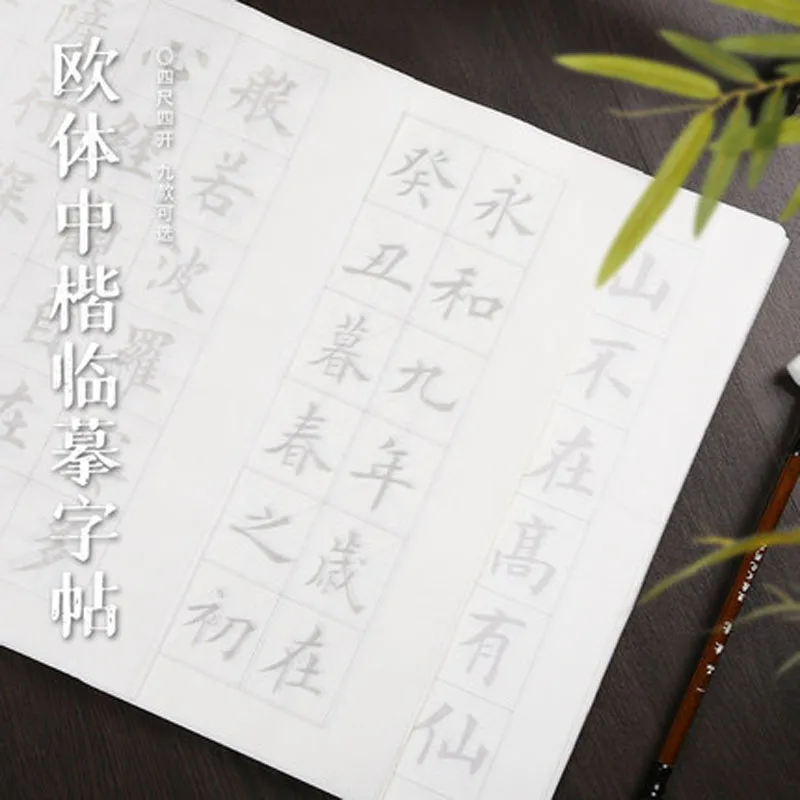 欧体中楷临摹字帖
〇四尺四开 九款可选
山不在高有仙
永和九年歲在
癸丑暮春之初
般若波羅
心經